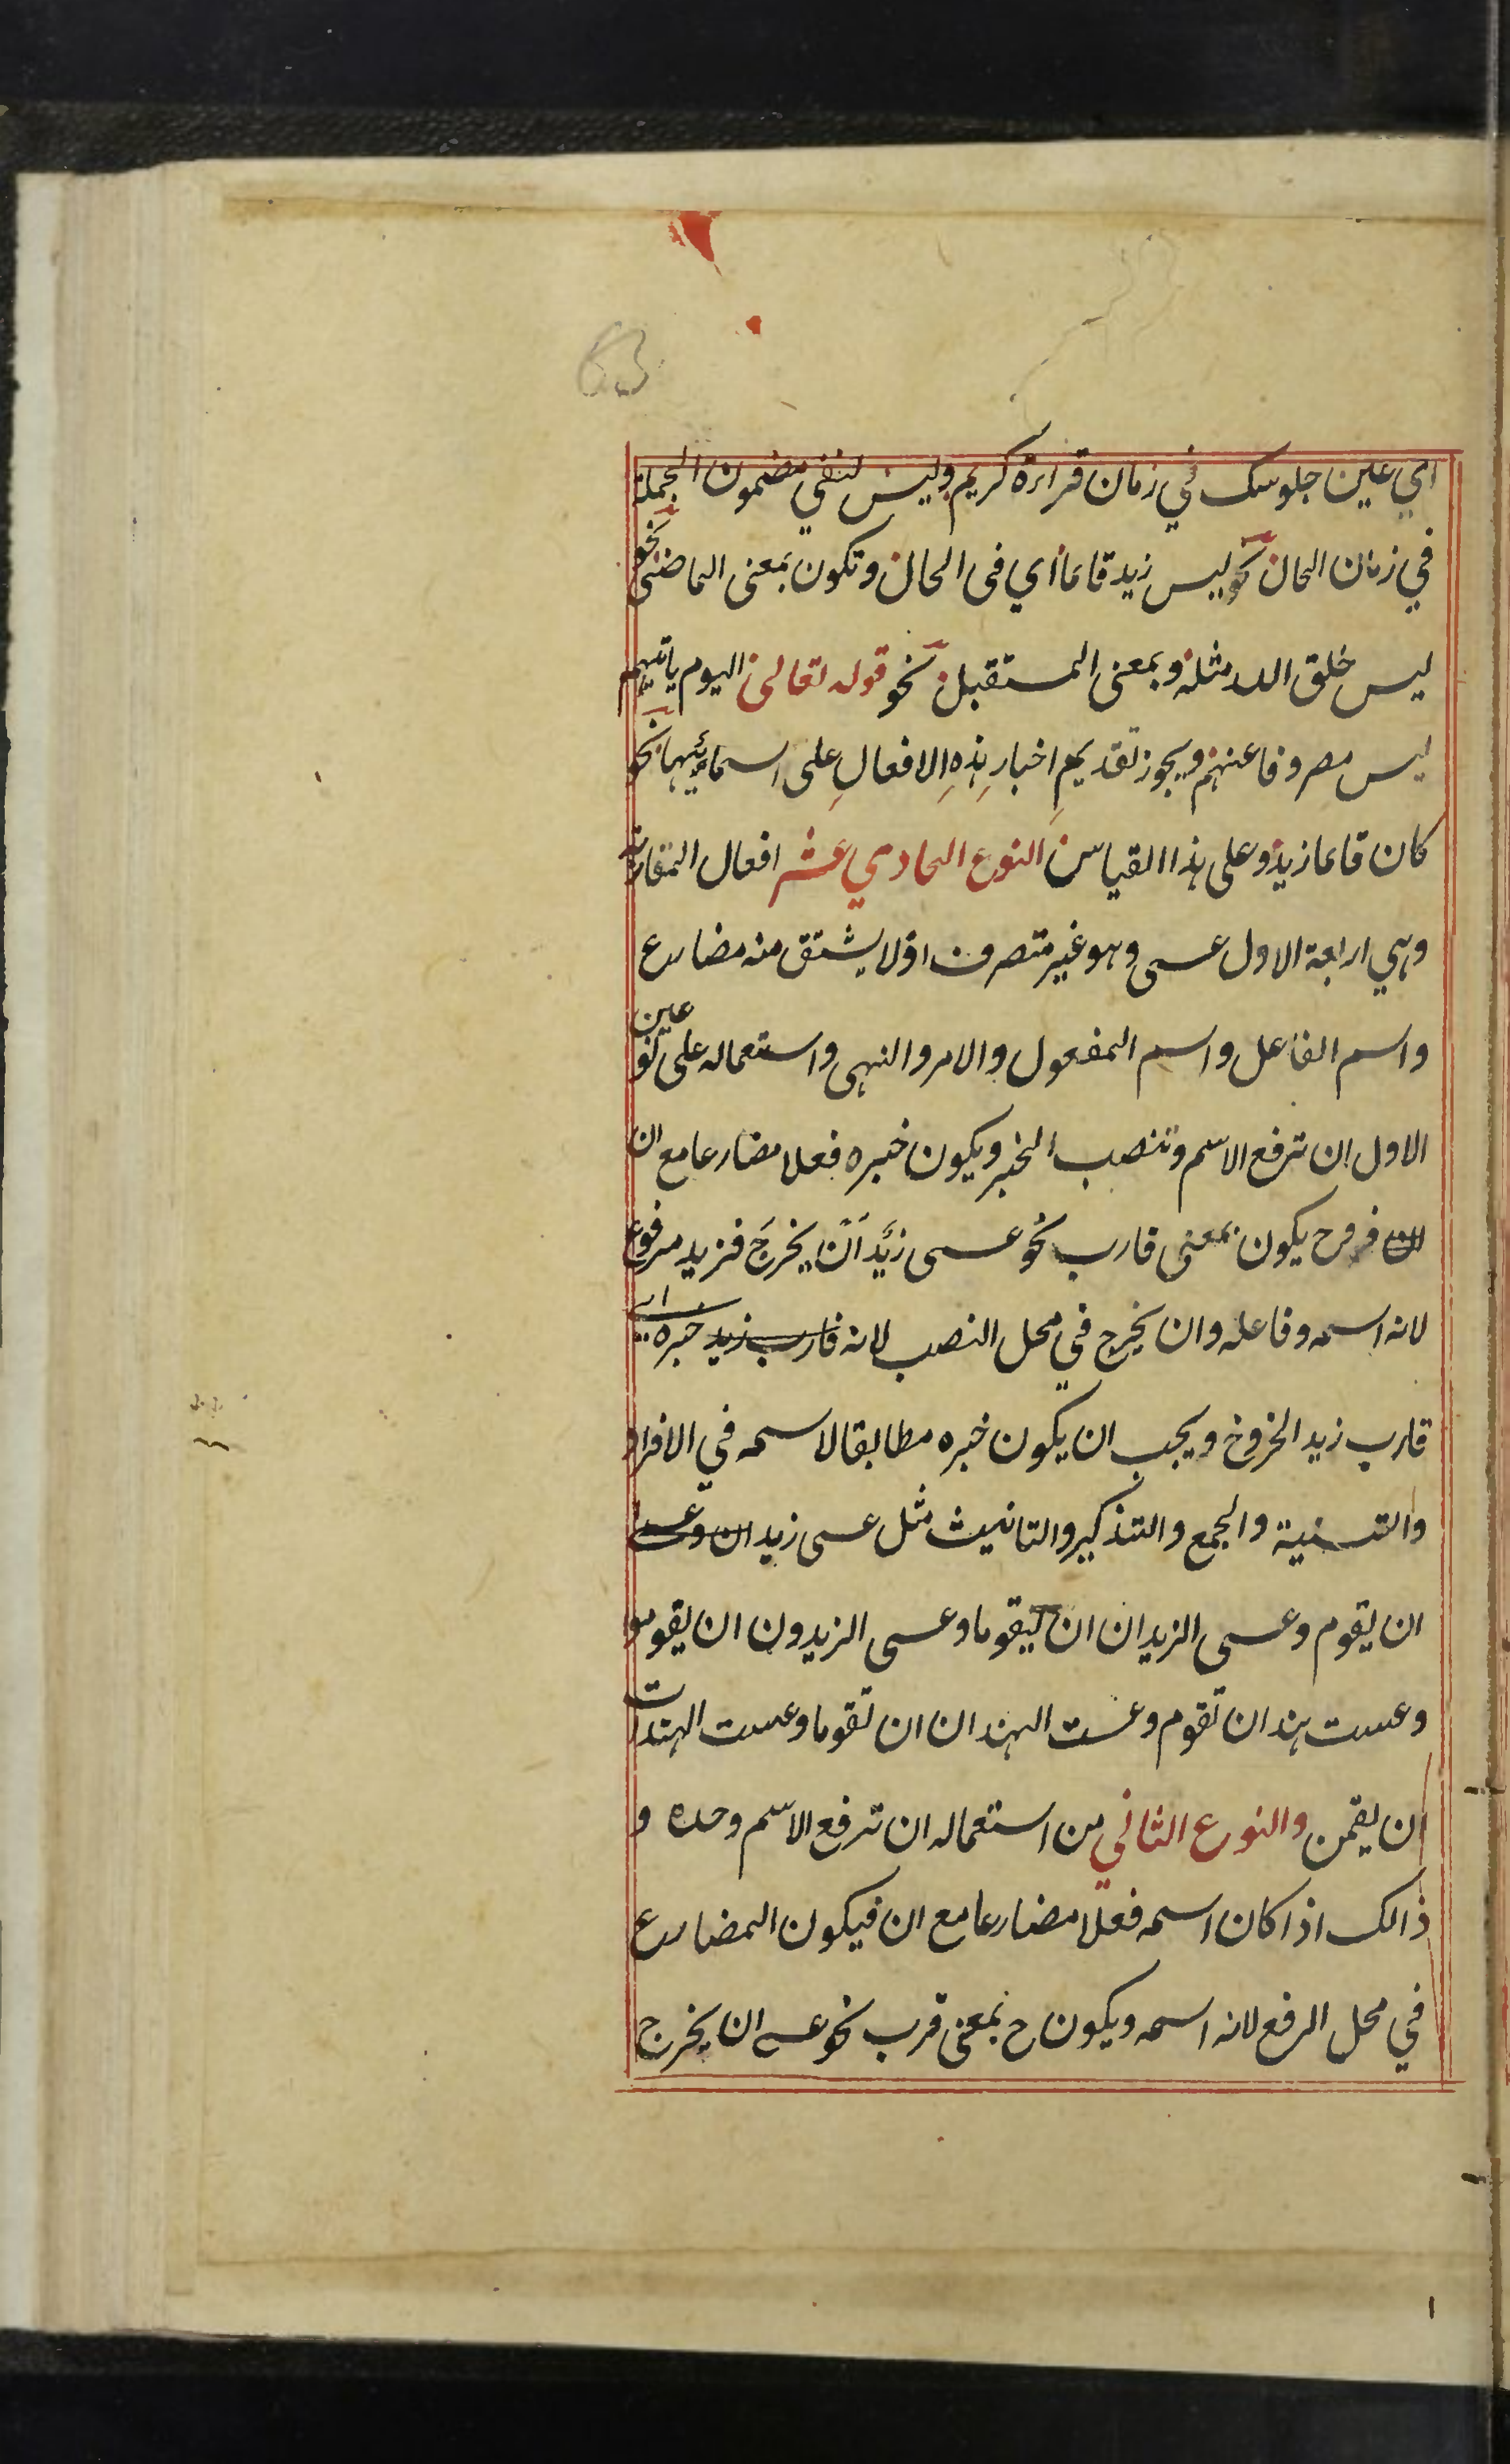 63
اي عين جلوسك في زمان قراءة كريم وليس لنفي مضمون الجملة
في زمان الحال نحو ليس زيد قائما اي فى الحال وتكون بمعنى الماضى نحو
ليس خلق الله مثله وبمعنى المستقبل نحو قوله تعالى اليوم ياتيهم
ليس مصروفا عنهم ويجوز تقديمِ اخبارِ هذهِ الافعالِ على اسمائها نحو
كان قائما زيد وعلى هذا القياس النوع الحادي عشر افعال المقاربة
وهي اربعة الاول عسى وهو غير متصرف اذ لا يشتق منه مضارع
واسم الفاعل واسم المفعول والامر والنهى واستعماله على نوعين
الاول ان ترفع الاسم وتنصب الخبر ويكون خبره فعلا مضارعا مع ان
فرح يكون بمعنى قارب نحو عسى زَيْد اَنْ يخرجَ فزيد مرفوع
لانه اسمه وفاعله وان يخرج في محل النصب لانه قارب زيد خبره اى
قارب زيد الخروج ويجب ان يكون خبره مطابقا لاسمه في الافراد
والتسنية والجمع والتذكير والتانيث مثل عسى زيد ان وعسا
ان يقوم وعسى الزيدان ان يقوما وعسى الزيدون ان يقومو
وعست هند ان تقوم وعست الهندان ان تقوما وعست الهندات
ان يقمن والنوع الثاني من استعماله ان ترفع الاسم وحده و
ذالك اذا كان اسمه فعلا مضارعا مع ان فيكون المضارع
في محل الرفع لانه اسمه ويكون ح بمعنى قرب نحو عسى ان يخرج